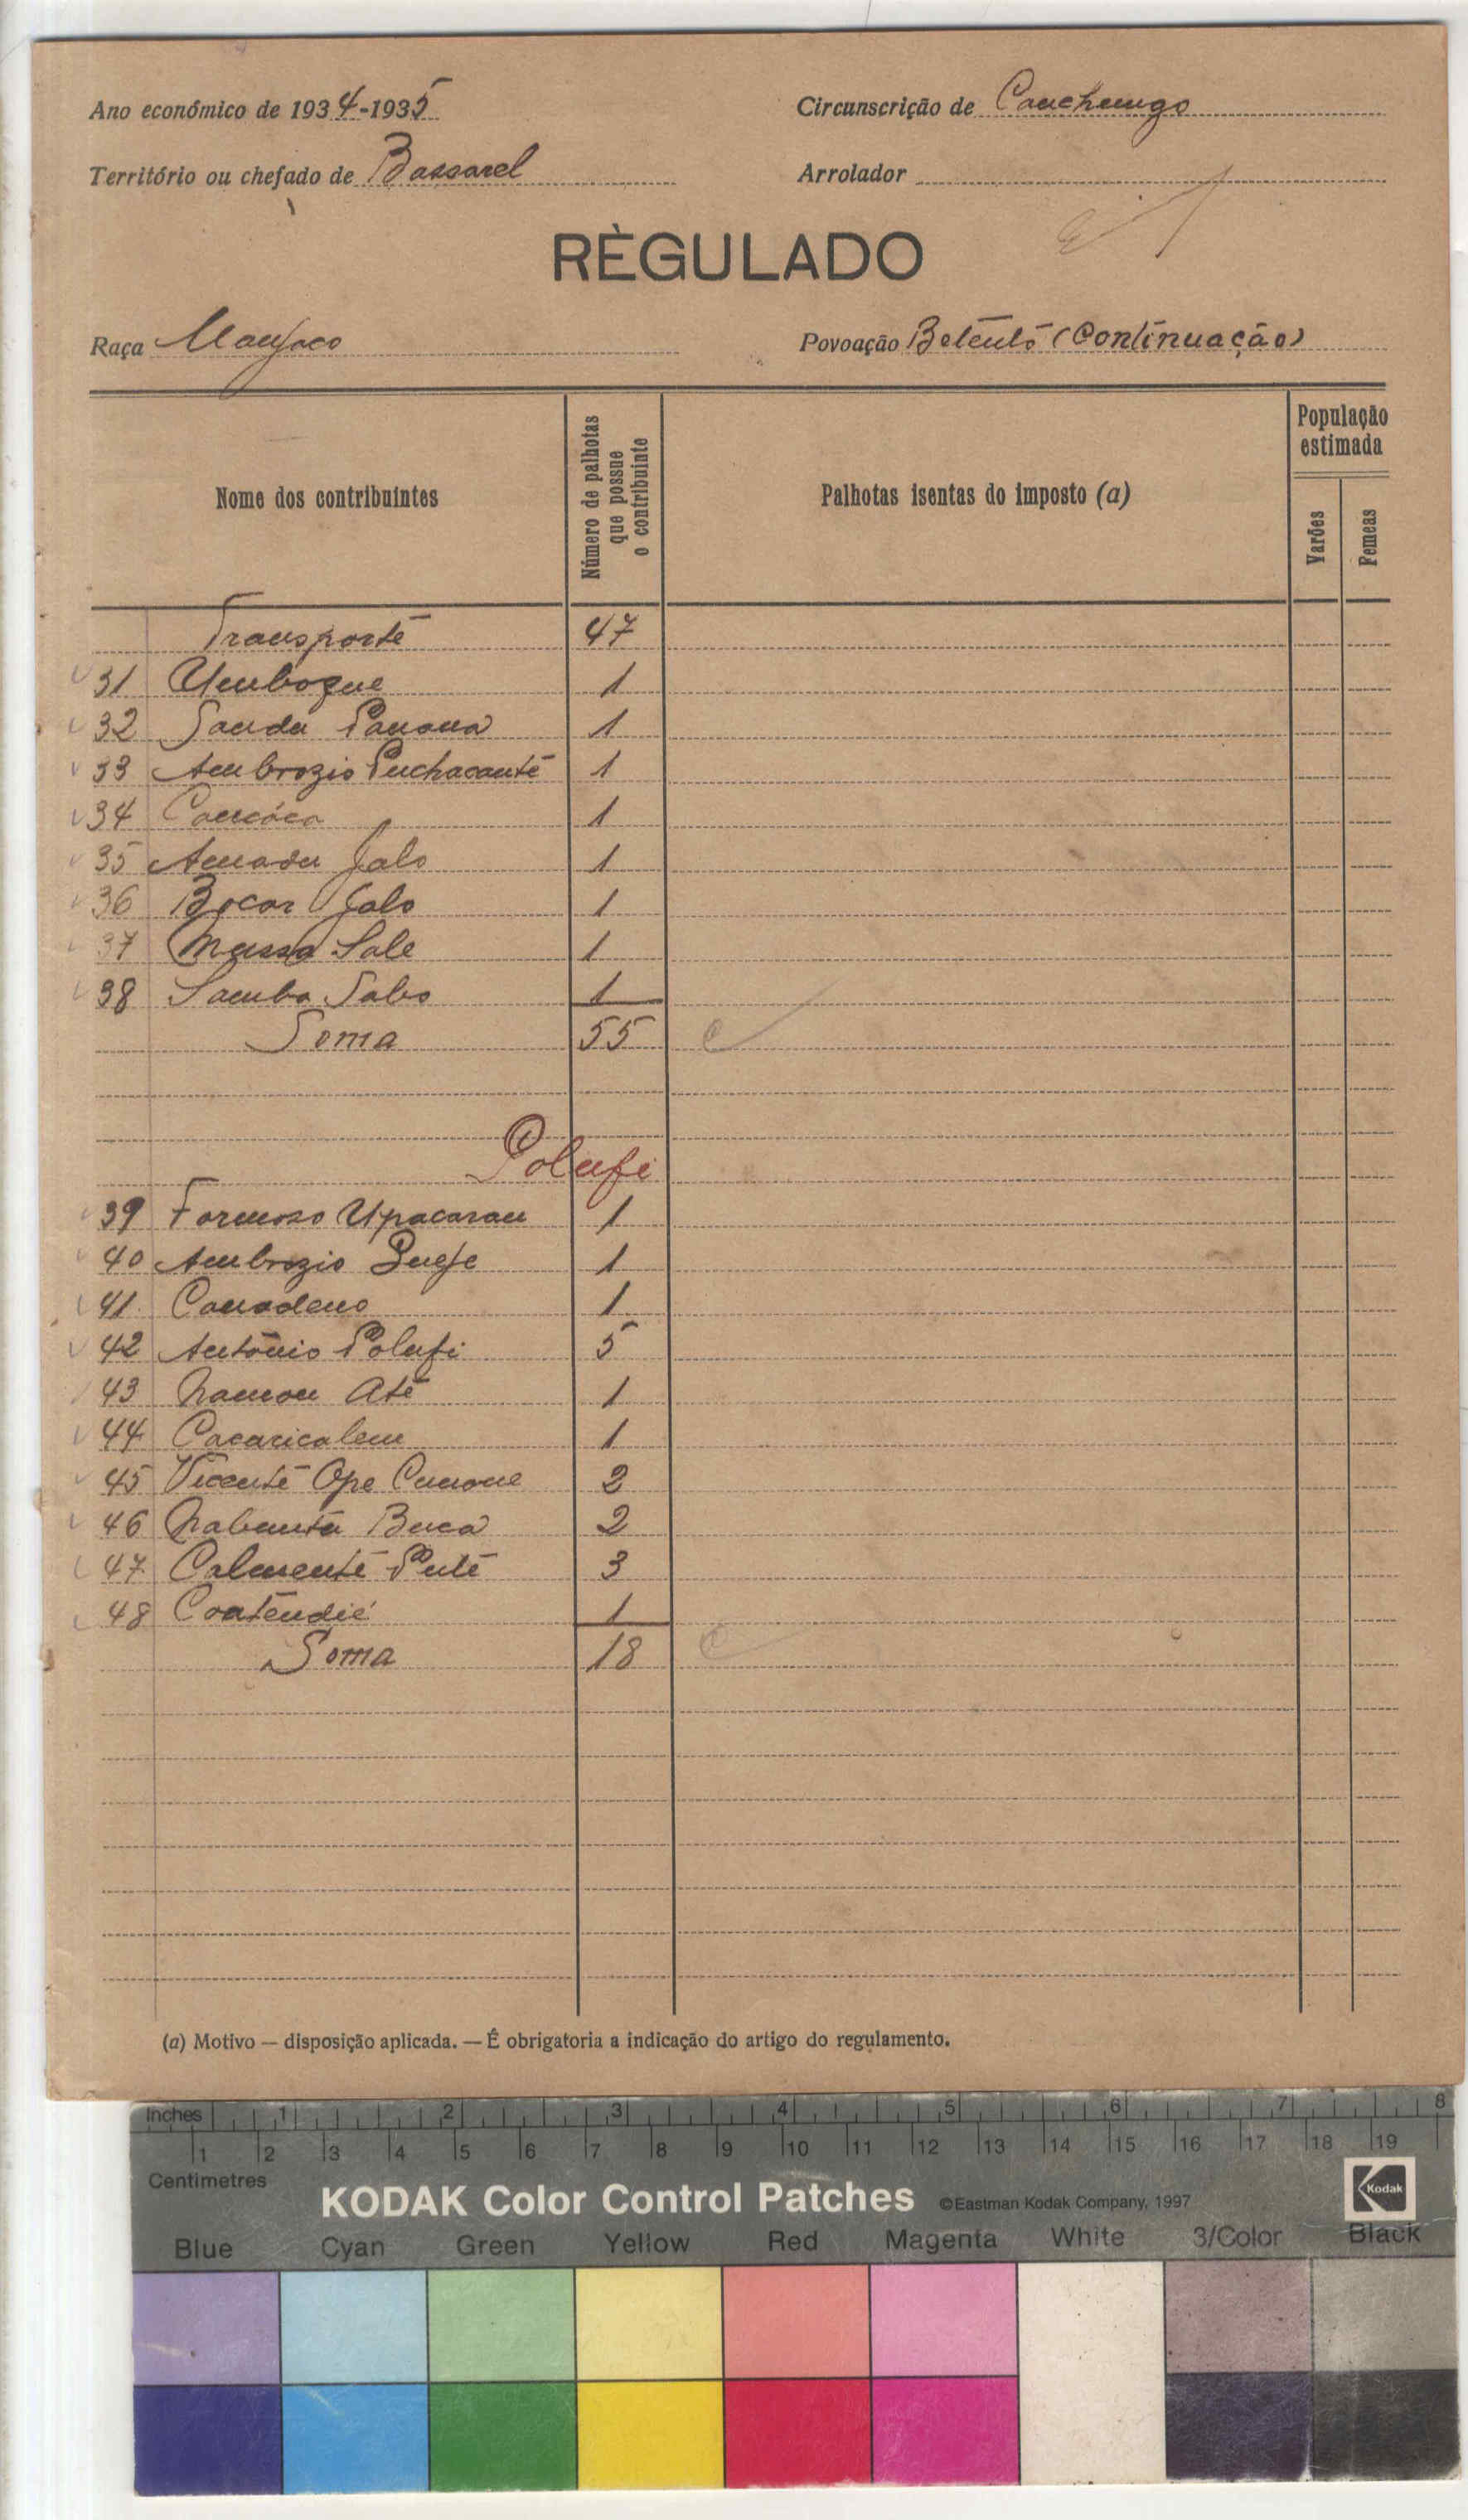 Ano económico de 1934-1935
Circunscrição de Canchungo
Território ou chefado de Bassarel
Arrolador
RÈGULADO
Raça Manjaco
Povoação Beténtó (Continuação)
Nome dos contribuintes
Número de palhotas que possue o contribuinte
Palhotas isentas do imposto (a)
População estimada
Varões
Femeas
Transporte 47
31 Umboque 1
32 Sanda Panana 1
33 Ambrozio Puchacanté 1
34 Cancóca 1
35 Amadu Jalo 1
36 Bocar Jalo 1
37 Mussa Sale 1
38 Samba Sabo 1
Soma 55
Polufi
39 Formoso Upacaran 1
40 Ambrozio 1
41 Canadeno 1
42 António Polufi 5
43 Namon Até 1
44 Cacaricalem 1
45 Vicente Ope 2
46 Nabanta Buca 2
47 Calmenté Puté 3
48 Conténdié 1
Soma 18
(a) Motivo — disposição aplicada. — É obrigatoria a indicação do artigo do regulamento.
Inches 1 2 3 4 5 6 7 8
1 2 3 4 5 6 7 8 9 10 11 12 13 14 15 16 17 18 19
Centimetres
KODAK Color Control Patches ©Eastman Kodak Company, 1997 Kodak
Blue Cyan Green Yellow Red Magenta White 3/Color Black